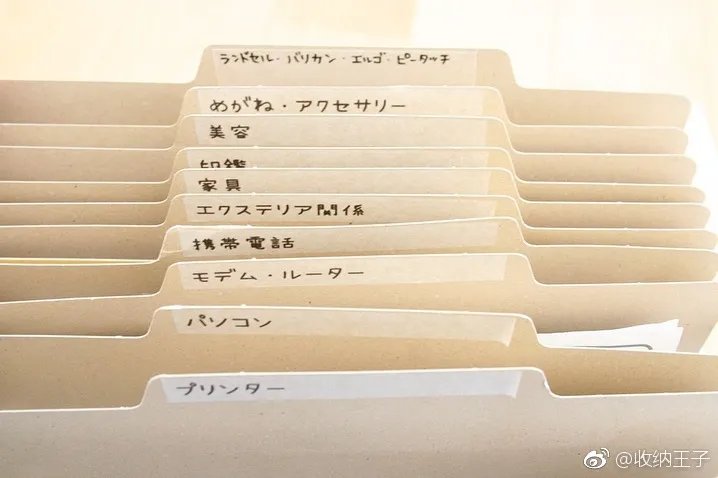 ランドセル・バリカン・エルゴ・ピータッチ
めがね・アクセサリー
美容
印鑑
家具
エクステリア関係
携帯電話
モデム・ルーター
パソコン
プリンター
@收纳王子